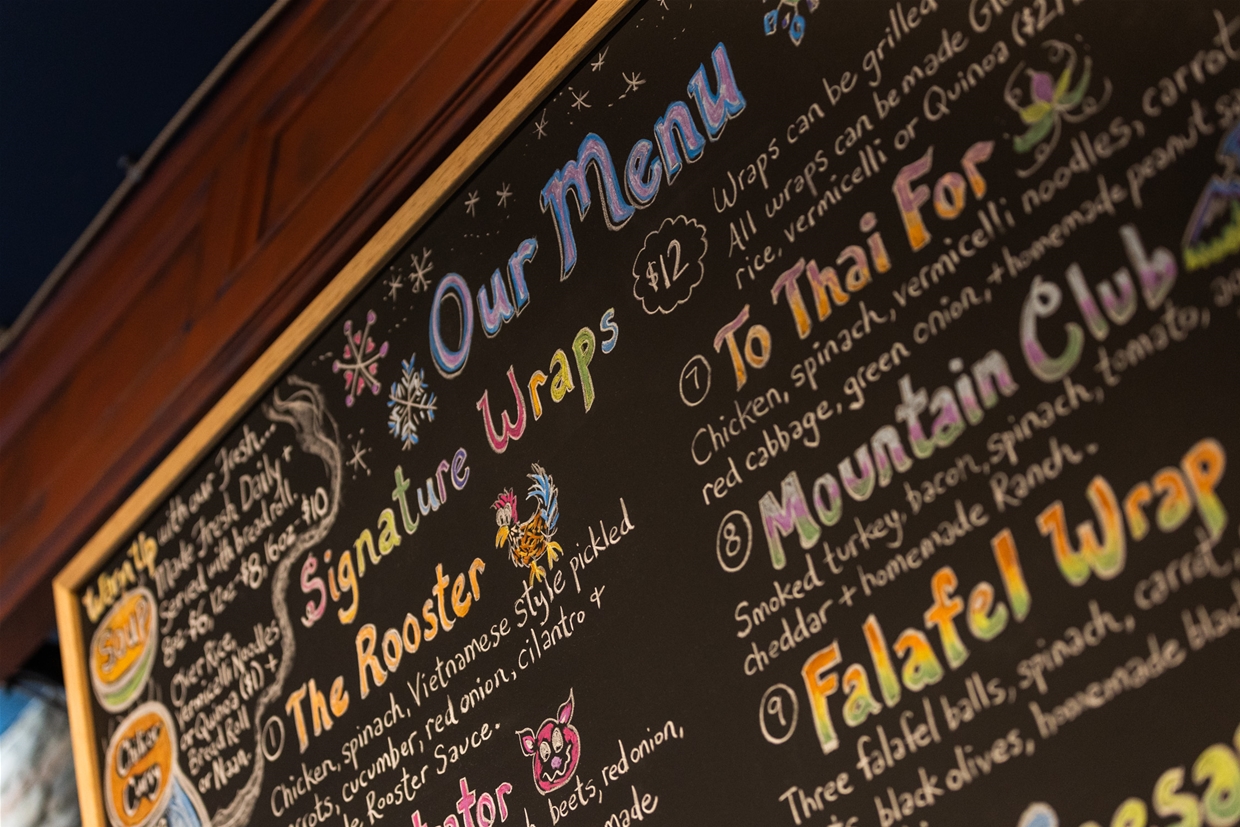 Our Menu
Signature Wraps
$12
Warm Up with our Fresh...
Soup
Made Fresh Daily +
Served with breadroll.
8oz-$6, 12oz-$8, 16oz-$10
Chicken
Curry
Over Rice,
Vermicelli Noodles
or Quinoa ($1) +
Bread Roll
or Naan.
1 The Rooster
Chicken, spinach, Vietnamese style pickled
carrots, cucumber, red onion, cilantro +
Rooster Sauce.
beets, red onion,
Wraps can be grilled
All wraps can be made
rice, vermicelli or Quinoa ($2)
7 To Thai For
Chicken, spinach, vermicelli noodles, carrot
red cabbage, green onion, + homemade peanut
8 Mountain Club
Smoked turkey, bacon, spinach, tomato,
cheddar + homemade Ranch.
9 Falafel Wrap
Three falafel balls, spinach, carrot,
black olives, homemade